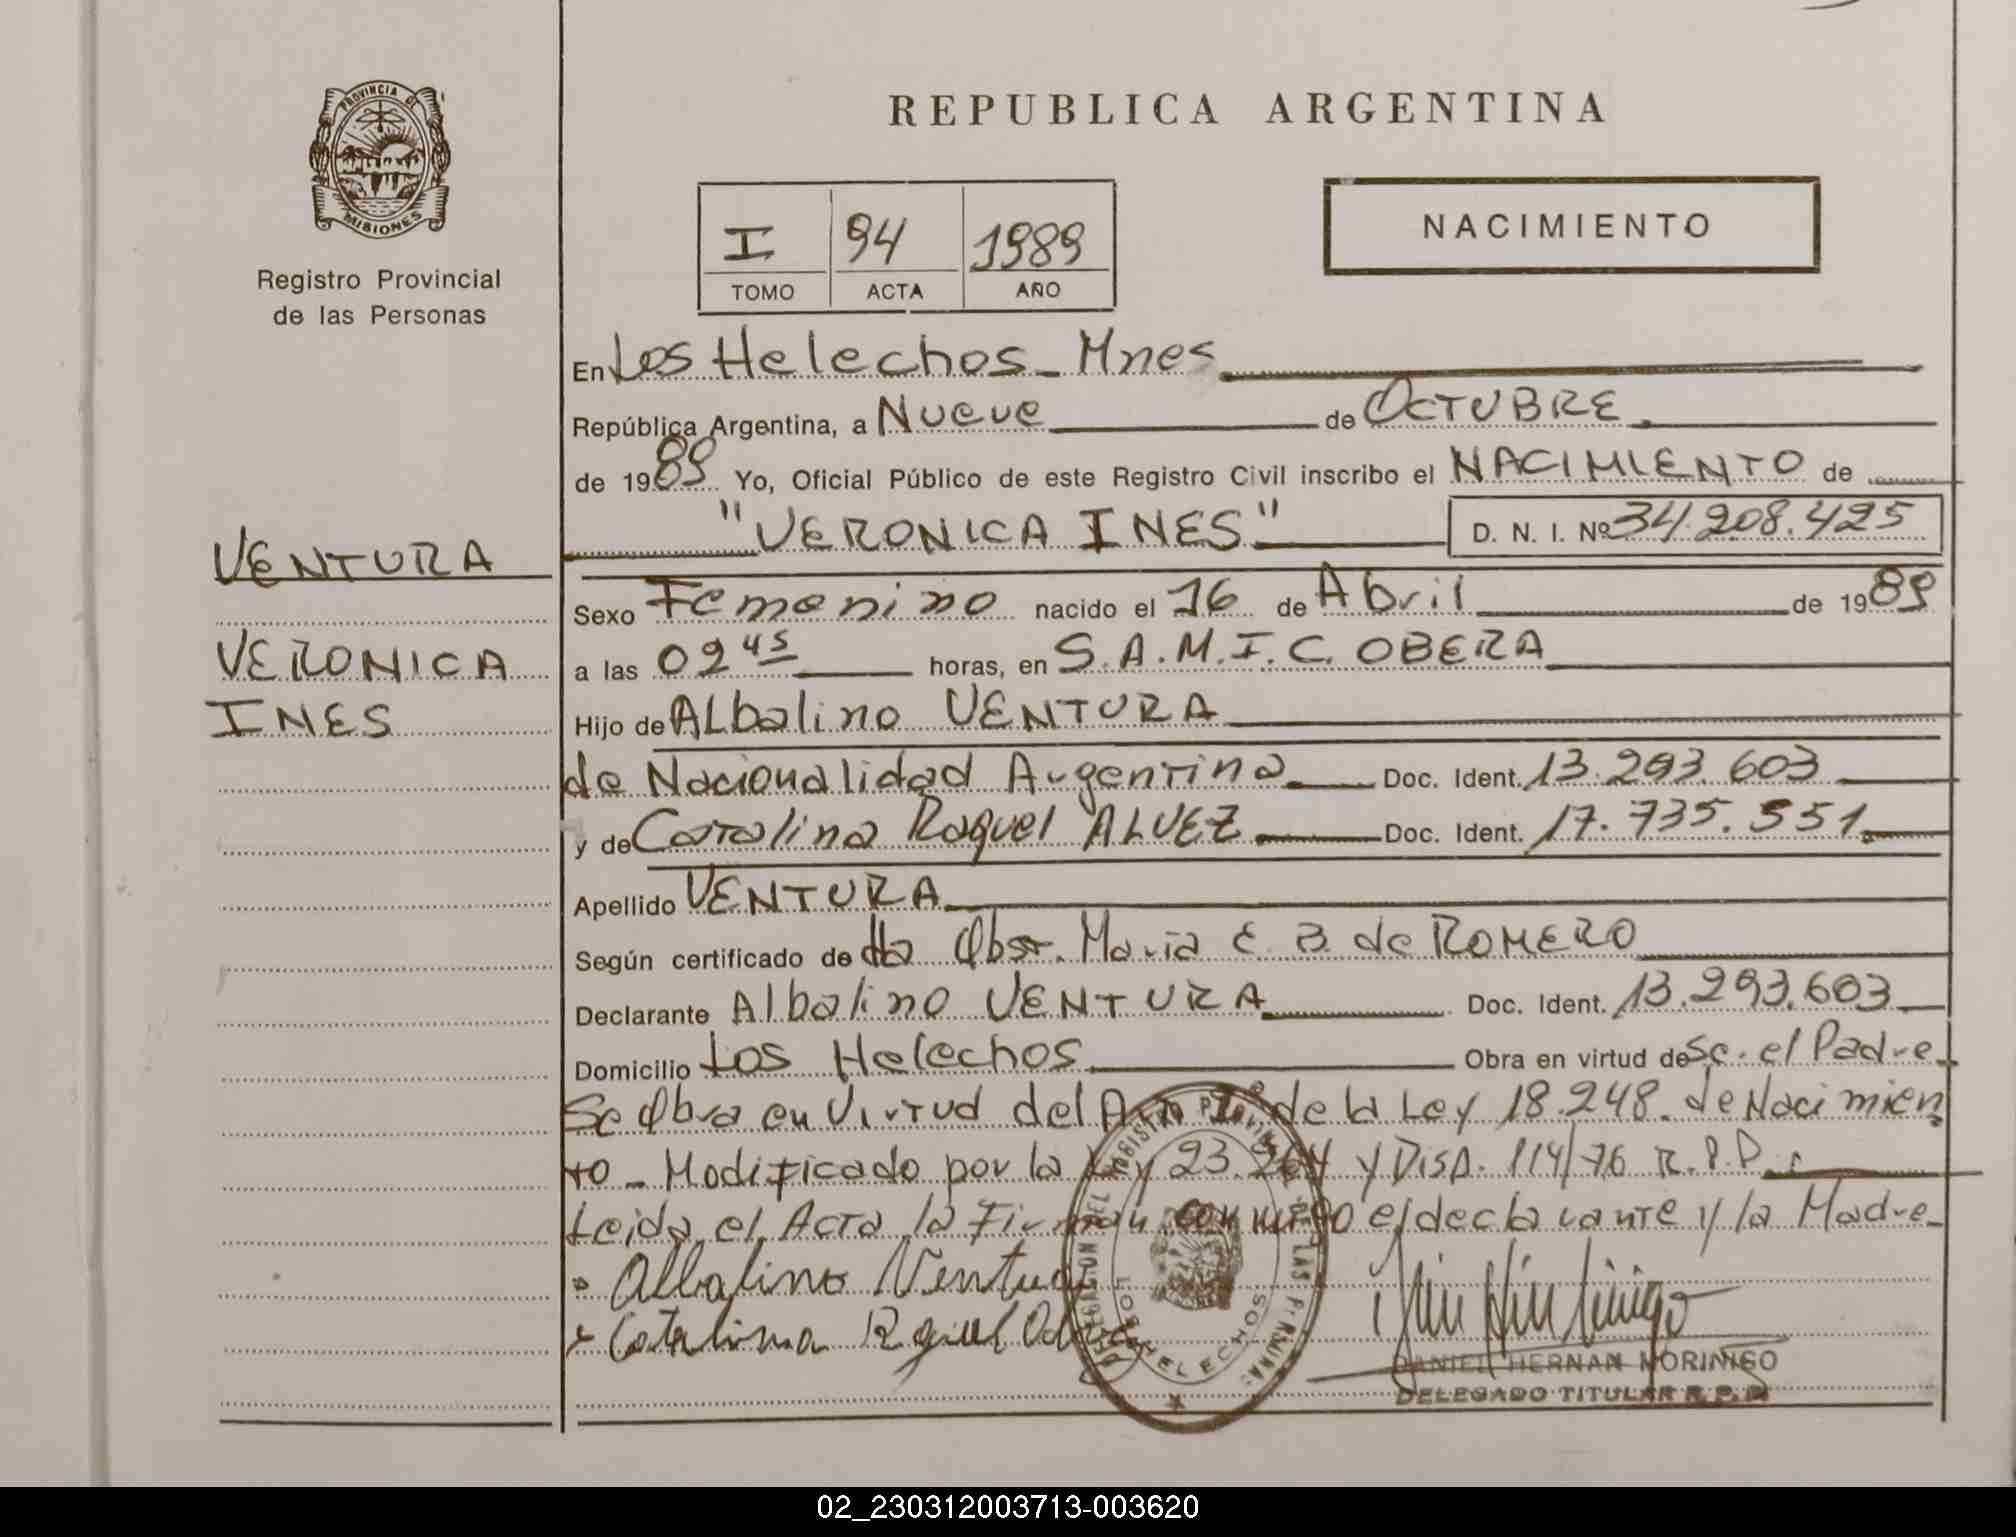 PROVINCIA DE
MISIONES
Registro Provincial
de las Personas
REPUBLICA ARGENTINA
I 94 1989
TOMO ACTA AÑO
NACIMIENTO
En Los Helechos - Mnes
República Argentina, a Nueve de OCTUBRE
de 1989 Yo, Oficial Público de este Registro Civil inscribo el NACIMIENTO de
"VERONICA INES" D. N. I. Nº 34.208.425
VENTURA
VERONICA
INES
Sexo Femenino nacido el 16 de Abril de 1989
a las 02 45 horas, en S.A.M.I.C. OBERA
Hijo de ALbalino VENTURA
de Nacionalidad Argentina Doc. Ident. 13.293.603
y de Catalina Raquel ALVEZ Doc. Ident. 17.735.551
Apellido VENTURA
Según certificado de la Obst. Maria E. B. de ROMERO
Declarante Albalino VENTURA Doc. Ident. 13.293.603
Domicilio Los Helechos Obra en virtud de Sc. el Padre
Se Obra en Virtud del Art de la Ley 18.248. de Nacimien
to - Modificado por la Ley 23.264 y Disp. 114/76 R.P.P.
Leida el Acta la Firman conmigo el declarante y la Madre
Albalino Ventura
Catalina Raquel
DELEGACION DEL REGISTRO PROVINCIAL DE LAS PERSONAS
LOS HELECHOS
DANIEL HERNAN MORINIGO
DELEGADO TITULAR R.P.P.
02_230312003713-003620